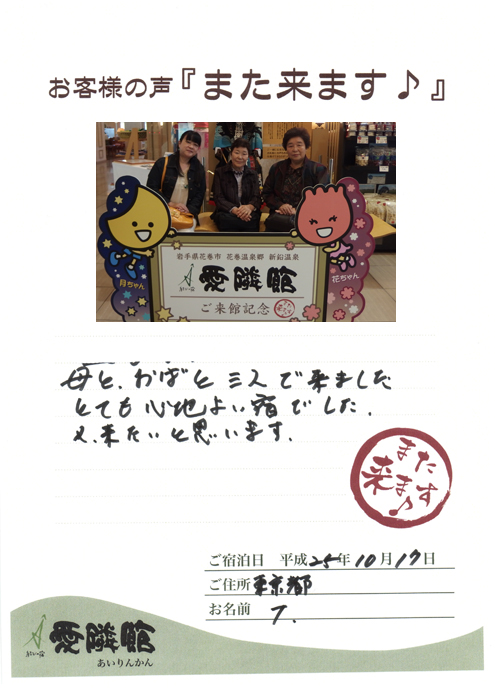 お客様の声『また来ます♪』
岩手県花巻市 花巻温泉郷 新鉛温泉
愛隣館
ご来館記念
月ちゃん
花ちゃん
母と、おばと三人で来ました
とても心地よい宿でした。
又、来たいと思います。
また
来ます♪
ご宿泊日 平成25年10月17日
ご住所 東京都
お名前 T.
愛隣館
あいりんかん